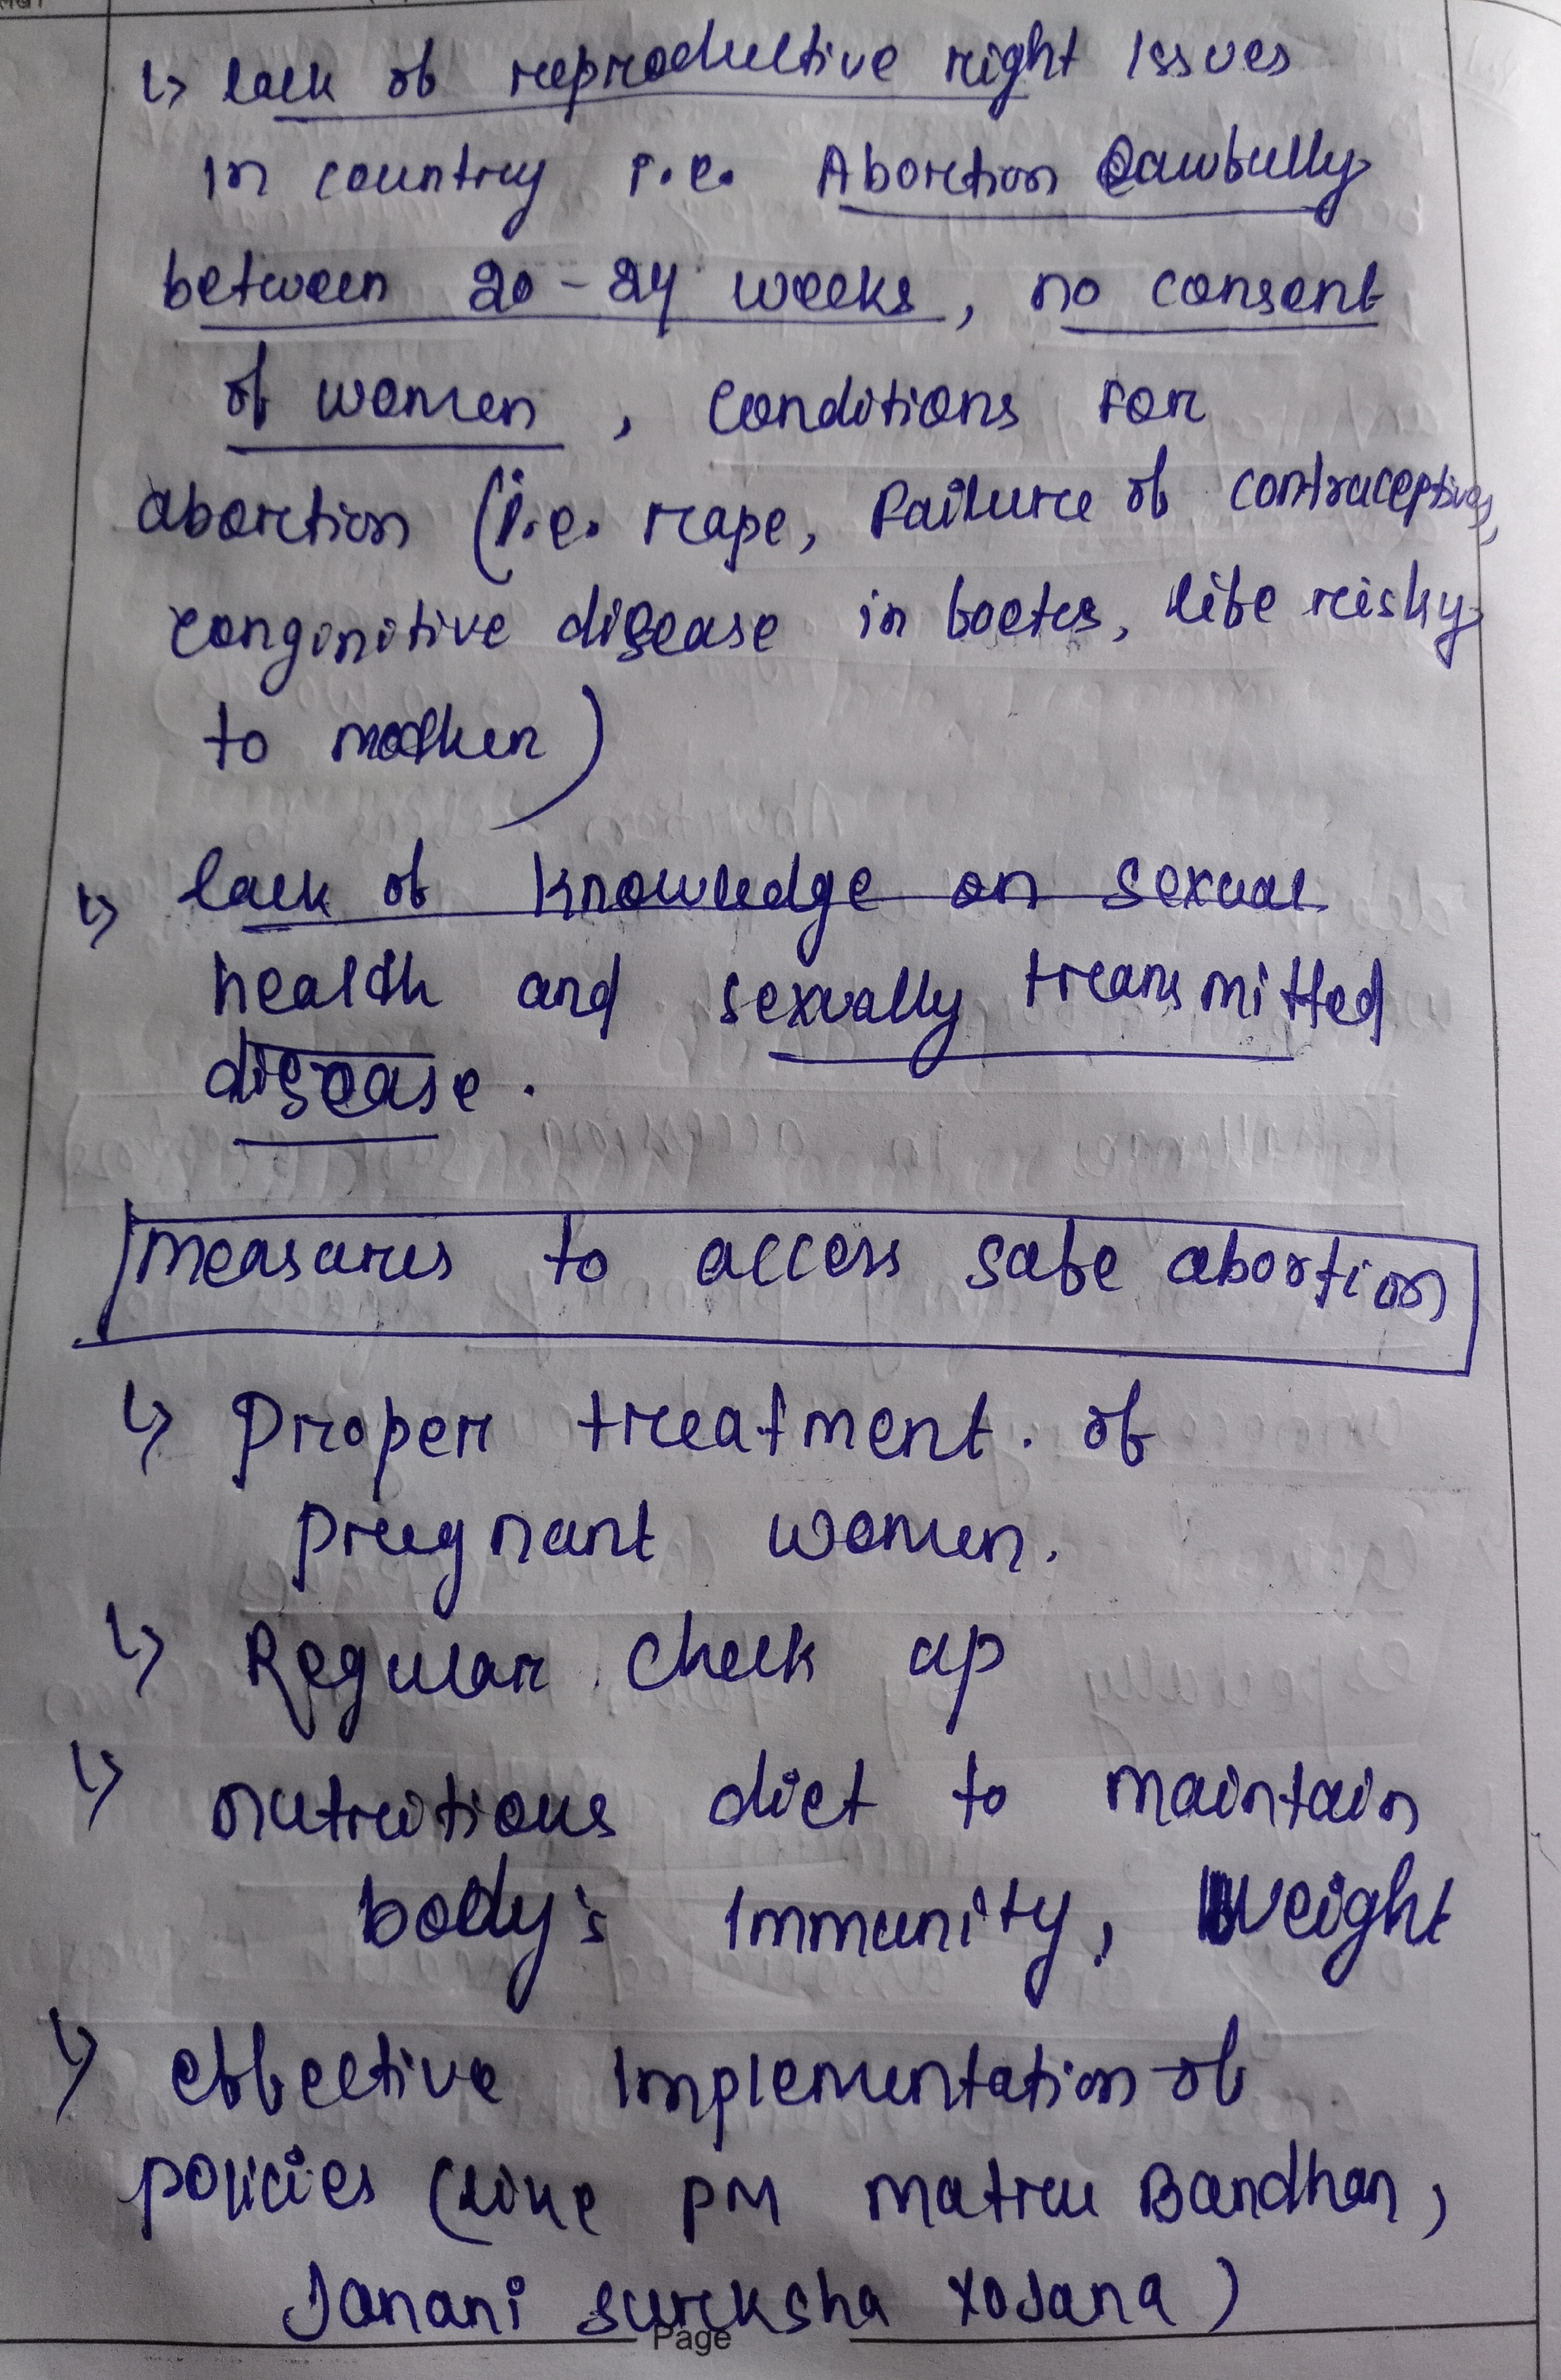 ↳ lack of reproductive right issues
in country i.e. Abortion Lawfully
between 20-24 weeks, no consent
of women, conditions for
abortion (i.e. rape, failure of contraceptives,
conginitive disease in foetus, life risky
to mother)
↳ lack of knowledge on sexual
health and sexually transmitted
disease.
measures to access safe abortion
↳ Proper treatment of
pregnant women.
↳ Regular check up
↳ nutritious diet to maintain
body's immunity, Weight
↳ effective implementation of
policies (like PM matru Bandhan,
Janani sureksha Yojana)
Page